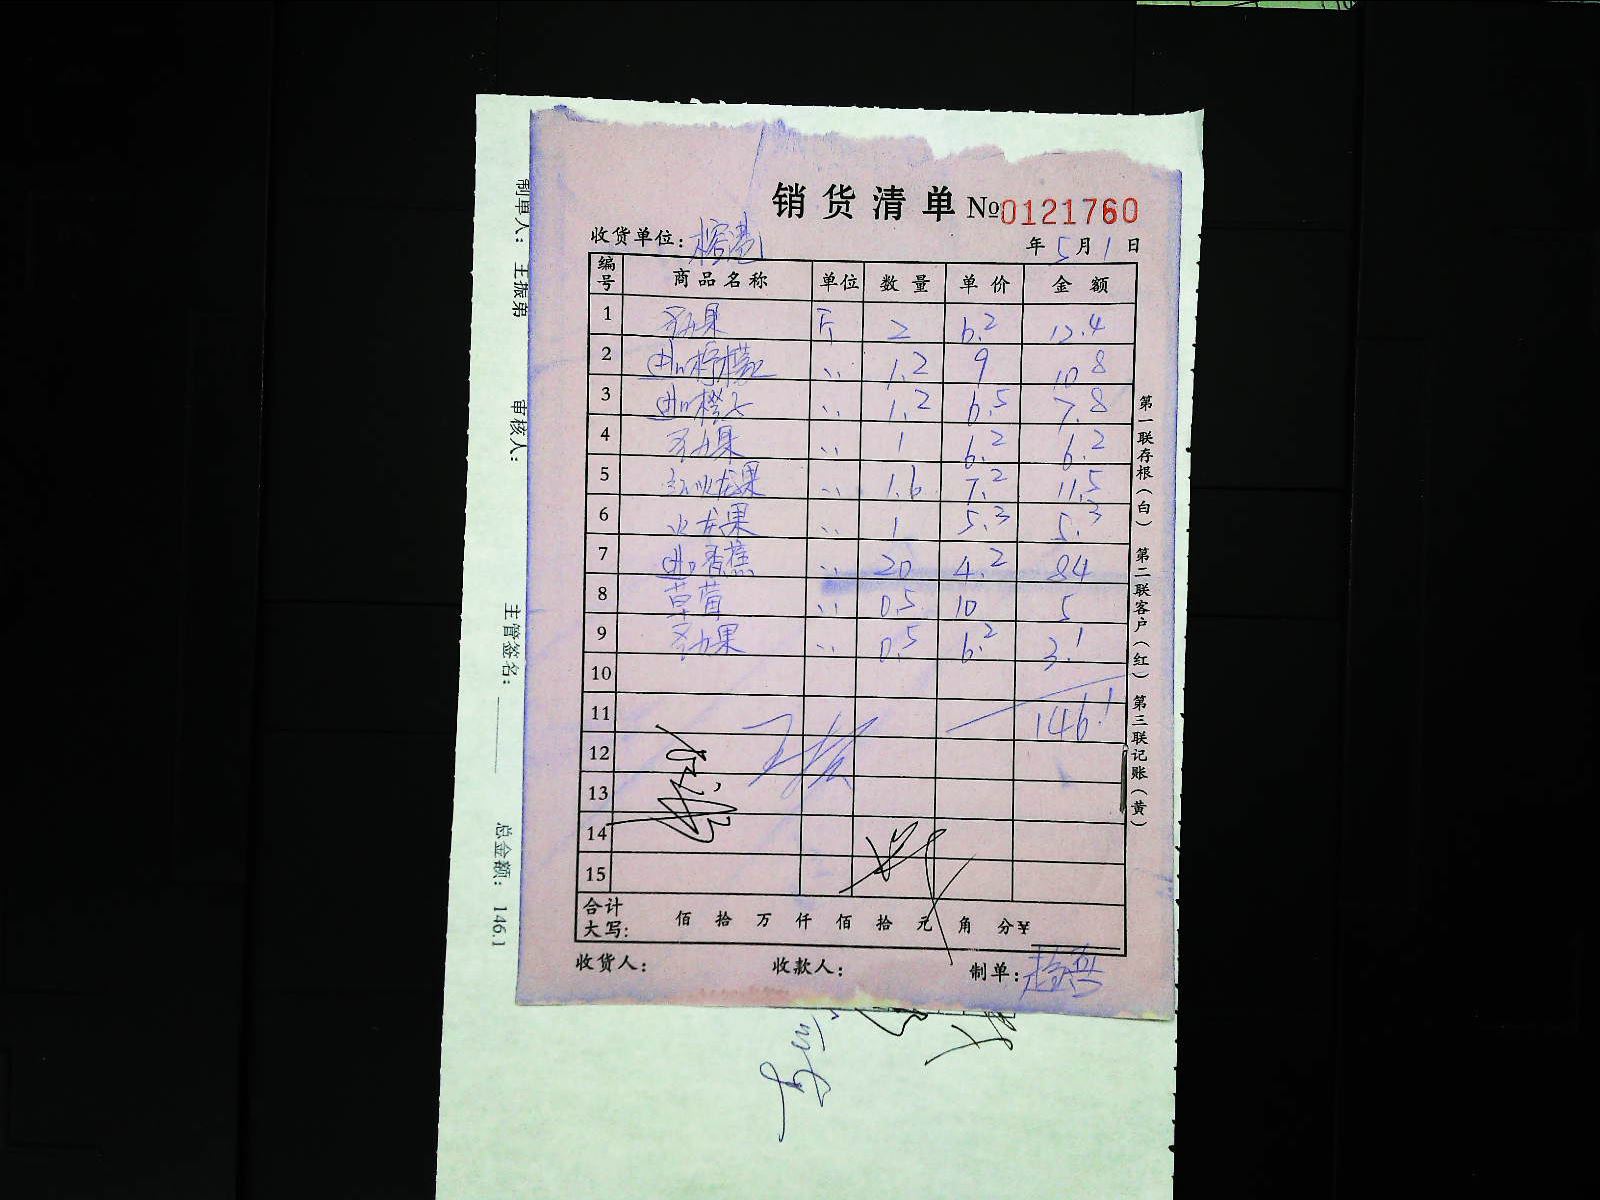 销货清单 №0121760
收货单位: 榕港 年5月1日
编号 商品名称 单位 数量 单价 金额
1 圣女果 斤 2 6.2 12.4
2 进口柠檬 〃 1.2 9 10.8
3 进口橙子 〃 1.2 6.5 7.8
4 圣女果 〃 1 6.2 6.2
5 红火龙果 〃 1.6 7.2 11.5
6 火龙果 〃 1 5.3 5.3
7 进口香蕉 〃 20 4.2 84
8 草莓 〃 0.5 10 5
9 圣女果 〃 0.5 6.2 3.1
10
11 146.1
12
13
14
15
合计大写: 佰 拾 万 仟 佰 拾 元 角 分 ¥
收货人: 收款人: 制单:
第一联存根(白) 第二联客户(红) 第三联记账(黄)
制单人: 王振弟 审核人: 主管签名: 总金额: 146.1